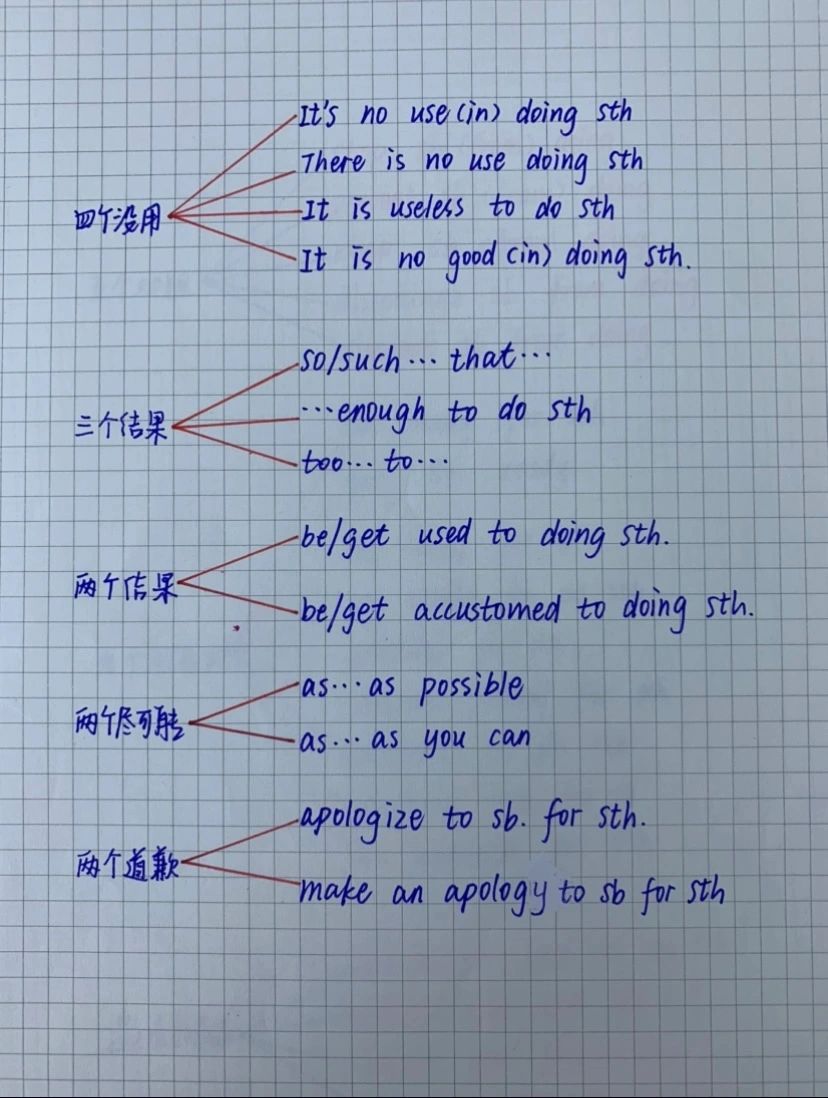 四个没用
It's no use (in) doing sth
There is no use doing sth
It is useless to do sth
It is no good (in) doing sth.
三个结果
so/such ··· that ···
··· enough to do sth
too ··· to ···
两个结果
be/get used to doing sth.
be/get accustomed to doing sth.
两个尽可能
as ··· as possible
as ··· as you can
两个道歉
apologize to sb. for sth.
make an apology to sb for sth